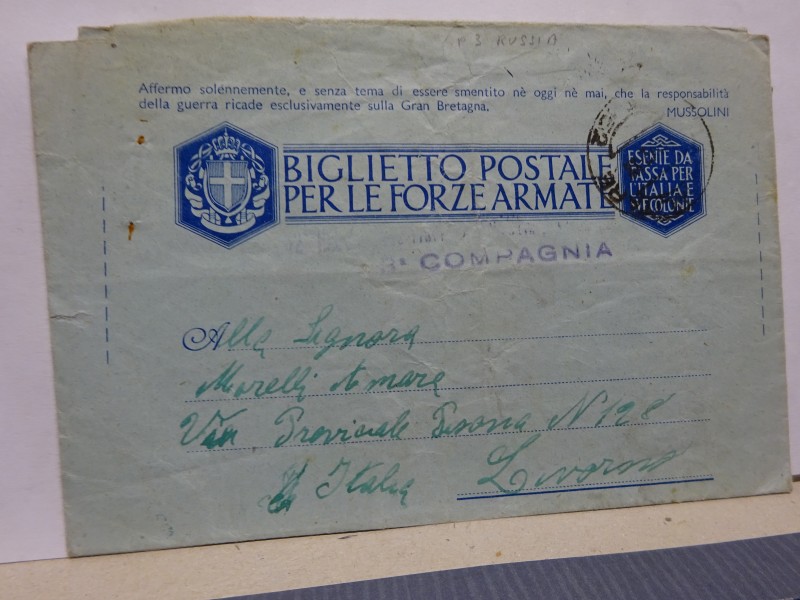 P 3 RUSSIA
Affermo solennemente, e senza tema di essere smentito nè oggi nè mai, che la responsabilità
della guerra ricade esclusivamente sulla Gran Bretagna.
MUSSOLINI
BIGLIETTO POSTALE
PER LE FORZE ARMATE
ESENTE DA
TASSA PER
L'ITALIA E
COLONIE
COMPAGNIA
Alla Signora
Morelli
Via Provinciale Pisana N 128
Italia Livorno